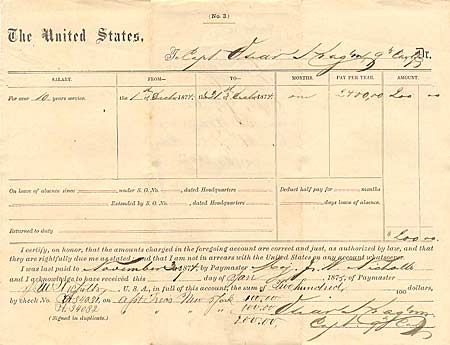 (No. 3)
The United States,
To Capt Dr.
SALARY. FROM— TO— MONTHS. PAY PER YEAR. AMOUNT.
For over 10 years service. the 1st 1874. 31st 1874. one 2400,00 200 00
On leave of absence since under S. O. No. , dated Headquarters Deduct half pay for months
Extended by S. O. No. , dated Headquarters days leave of absence.
Returned to duty
$ 200 00
I certify, on honor, that the amounts charged in the foregoing account are correct and just, as authorized by law, and that
they are rightfully due me as stated and that I am not in arrears with the United States on any account whatsoever.
I was last paid to November 30 1874, by Paymaster Maj. Nicholls
and I acknowledge to have received this day of Jan 1875, of Paymaster
U. S. A., in full of this account, the sum of Two hundred 100 dollars,
by check No. 34031, on New York 100.00
34032 " " " 100.00
(Signed in duplicate.) 200.00 Capt 9th Cav